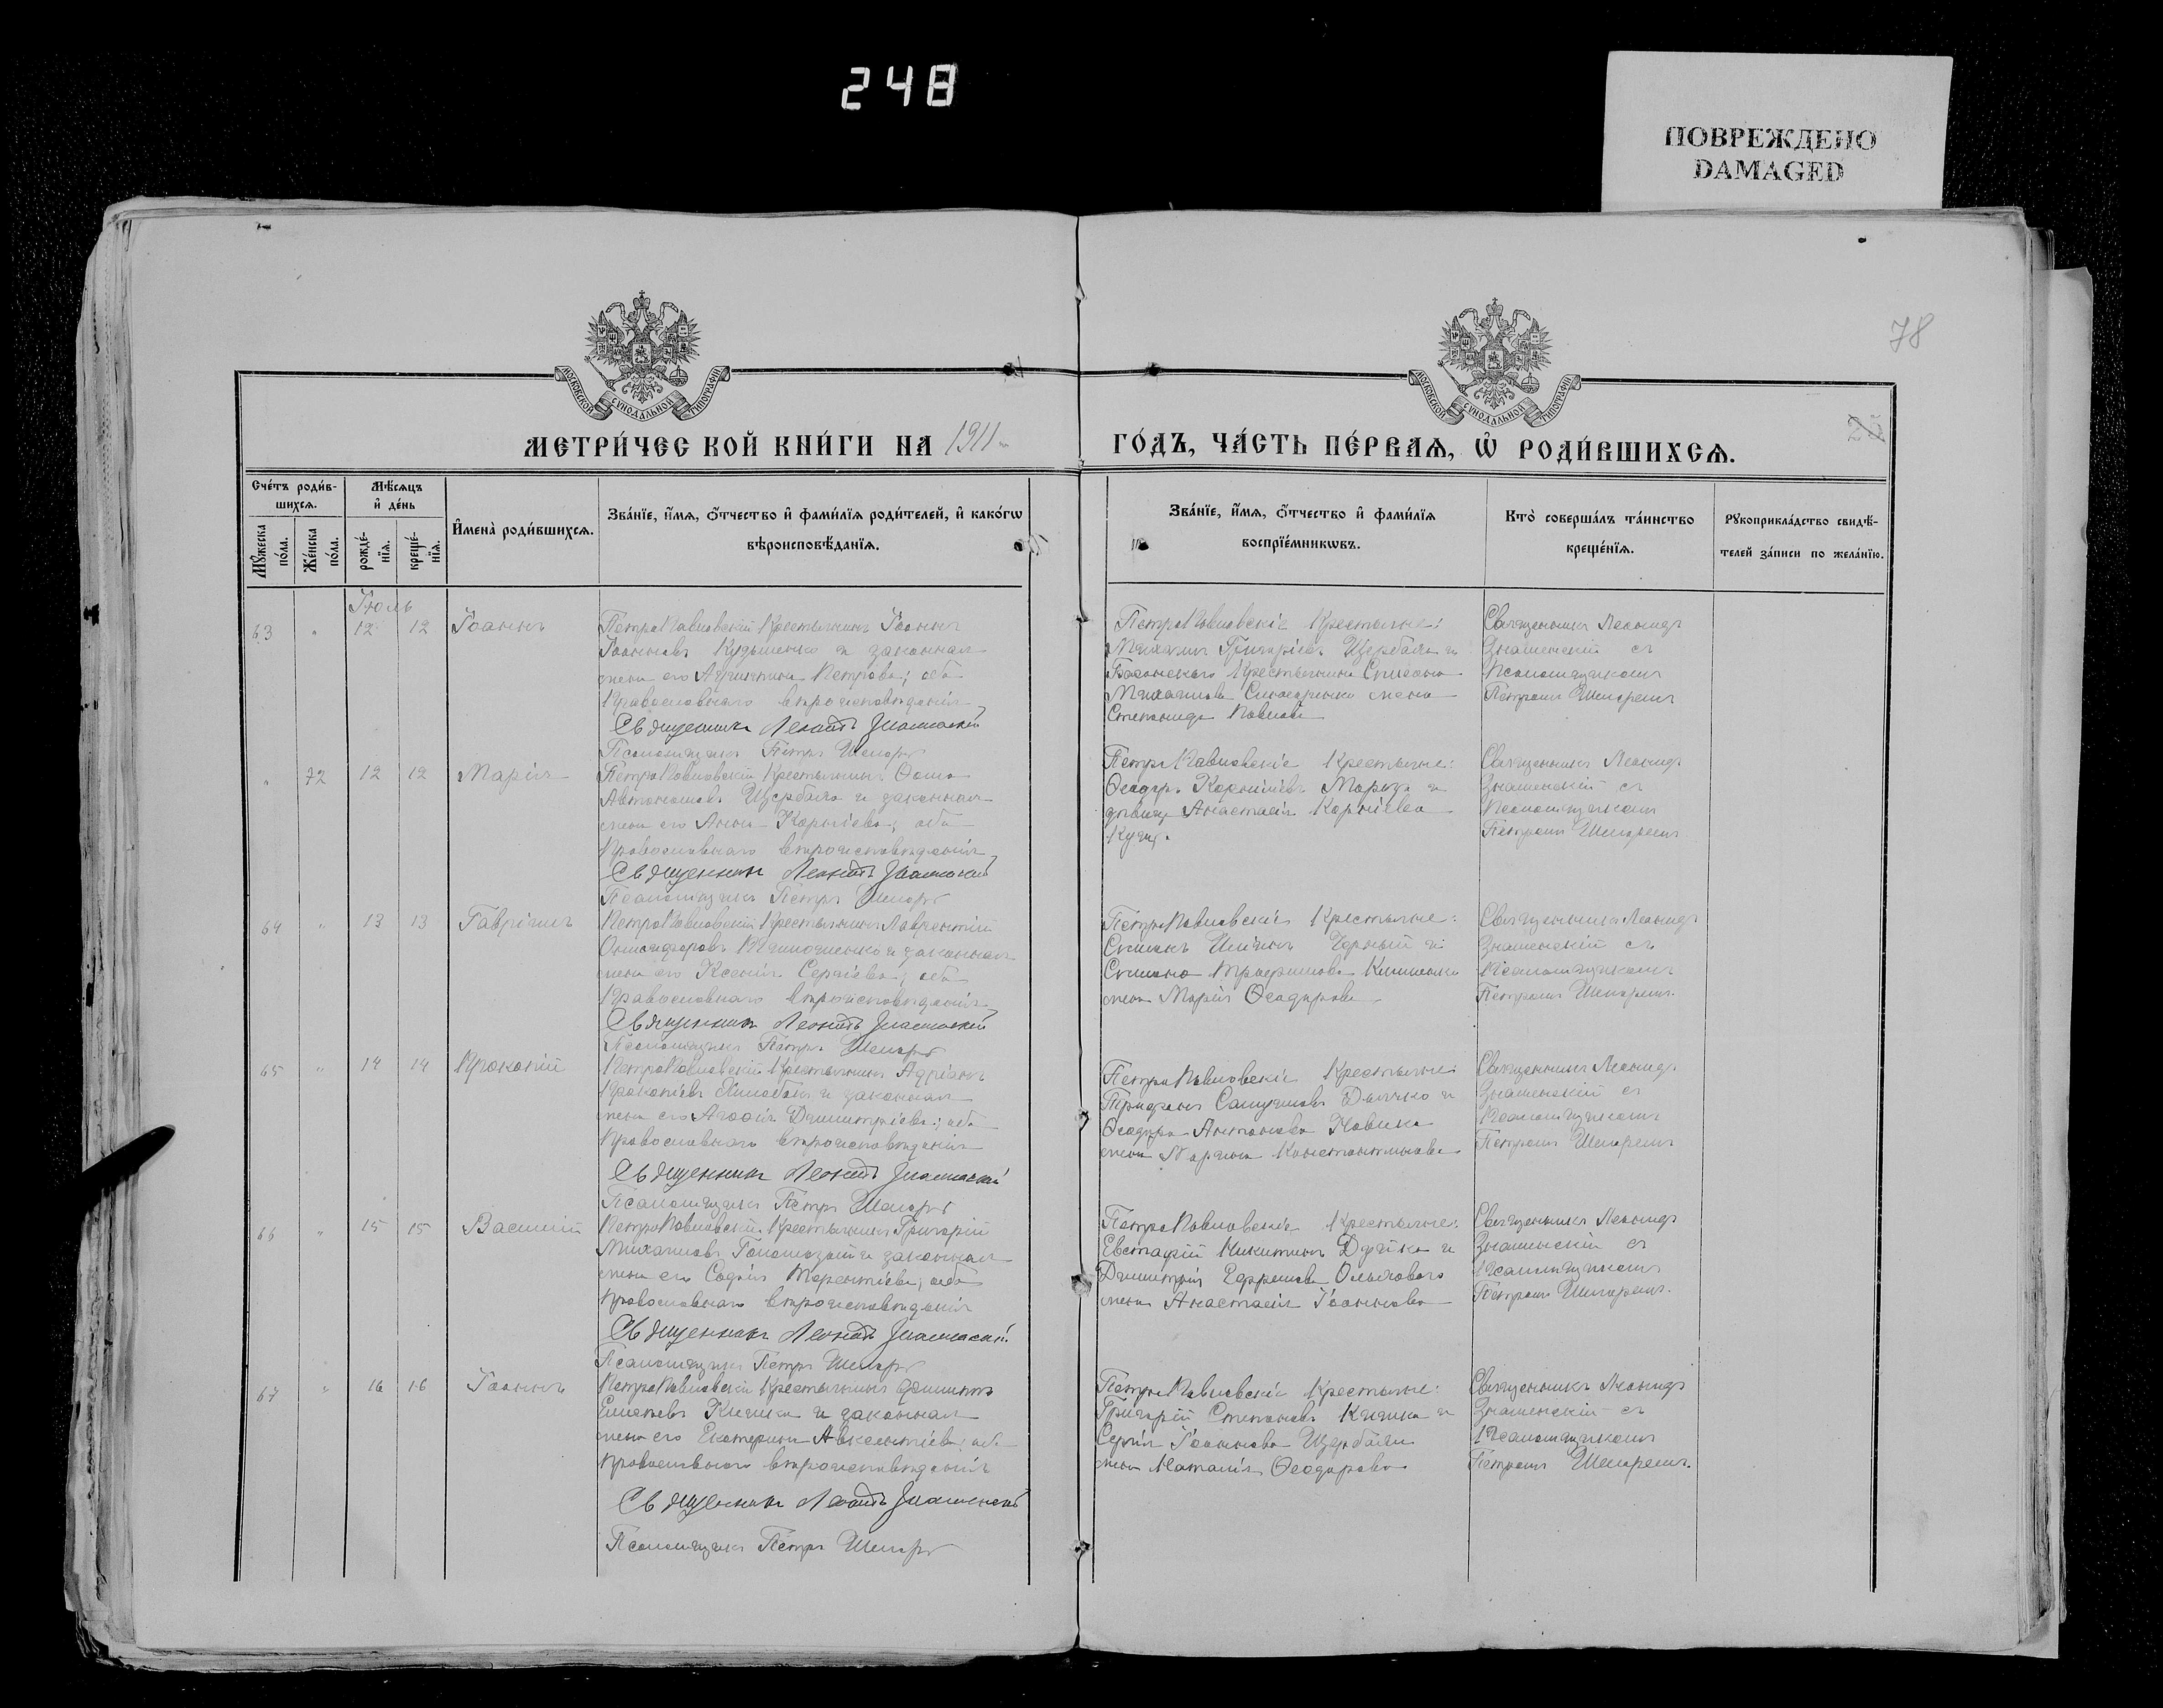 248
ПОВРЕЖДЕНО
DAMAGED
78
МОСКОВСКОЙ СУНОДАЛЬНОЙ ТИПОГРАФІИ
МОСКОВСКОЙ СУНОДАЛЬНОЙ ТИПОГРАФІИ
МЕТРИ́ЧЕС КОЙ КНИ́ГИ НА 1911
ГО́ДЪ, ЧА́СТЬ ПЕ́РВАѦ, Ѿ РОДИ́ВШИХСѦ.
Сче́тъ роди́в-
шихсѧ.
Мꙋ́жеска по́ла.
Же́нска по́ла.
Мѣ́сѧцъ
и҆ де́нь
рожде́-
нїѧ.
креще́-
нїѧ.
И҆мена̀ роди́вшихсѧ.
Зва́нїе, и҆́мѧ, ѻ҆́тчество и҆ фами́лїѧ роди́телей, и҆ како́гѡ
вѣроисповѣ́данїѧ.
Зва́нїе, и҆́мѧ, ѻ҆́тчество и҆ фами́лїѧ
воспрїе́мникѡвъ.
Кто̀ соверша́лъ та́инство
креще́нїѧ.
Рꙋкоприкла́дство свидѣ́-
телей за́писи по жела́нїю.
Іюль
63 " 12 12 Іоаннъ
ПетроПавловскій Крестьянинъ Іоаннъ
Іоанновъ Кузьменко и законная
жена его Петрова; оба
Православнаго вѣроисповѣданія
Священникъ Леонидъ Знаменскій
Псаломщикъ Петръ Шкляръ
ПетроПавловскіе Крестьяне:
Михаилъ Григоріевъ Щербакъ и
Крестьянина Симеона
Михаилова жена
Степанида Павлова
Священникъ Леонидъ
Знаменскій съ
Псаломщикомъ
Петромъ
" 72 12 12 Марія
ПетроПавловскій Крестьянинъ Ѳома
Автономовъ Щербакъ и законная
жена его Анна Корніева; оба
Православнаго вѣроисповѣданія
Священникъ Леонидъ Знаменскій
Псаломщикъ Петръ
ПетроПавловскіе Крестьяне:
Ѳеодоръ Корніевъ Морозъ и
дѣвица Анастасія Корніева
Куцъ.
Священникъ Леонидъ
Знаменскій съ
Псаломщикомъ
Петромъ
64 " 13 13 Гавріилъ
ПетроПавловскій Крестьянинъ Лаврентій
и законная
жена его Ксенія Сергіева; оба
Православнаго вѣроисповѣданія
Священникъ Леонидъ Знаменскій
Псаломщикъ Петръ
ПетроПавловскіе Крестьяне:
Симеонъ Ильинъ Черный и
Симеона Трофимова
жена Марія Ѳеодорова
Священникъ Леонидъ
Знаменскій съ
Псаломщикомъ
Петромъ
65 " 14 14 Прокопій
ПетроПавловскій Крестьянинъ Адріанъ
Прокопіевъ и законная
жена его Агафія Димитріева; оба
Православнаго вѣроисповѣданія
Священникъ Леонидъ Знаменскій
Псаломщикъ Петръ
ПетроПавловскіе Крестьяне:
Трифонъ Самуиловъ Дьячко и
Ѳеодора Антонова Новика
жена Марѳа Константинова
Священникъ Леонидъ
Знаменскій съ
Псаломщикомъ
Петромъ
66 " 15 15 Василій
ПетроПавловскій Крестьянинъ Григорій
Михаиловъ и законная
жена его Софія Терентіева; оба
Православнаго вѣроисповѣданія
Священникъ Леонидъ Знаменскій
Псаломщикъ Петръ
ПетроПавловскіе Крестьяне:
Евстафій Никитинъ и
Димитрія Ефремова Ольхового
жена Анастасія Іоаннова
Священникъ Леонидъ
Знаменскій съ
Псаломщикомъ
Петромъ
67 " 16 16 Іоаннъ
ПетроПавловскій Крестьянинъ Филиппъ
и законная
жена его Екатерина Авксентіева; оба
Православнаго вѣроисповѣданія
Священникъ Леонидъ Знаменскій
Псаломщикъ Петръ
ПетроПавловскіе Крестьяне:
Григорій Степановъ Кигика и
Сергія Іоаннова Щербака
жена Наталія Ѳеодорова
Священникъ Леонидъ
Знаменскій съ
Псаломщикомъ
Петромъ